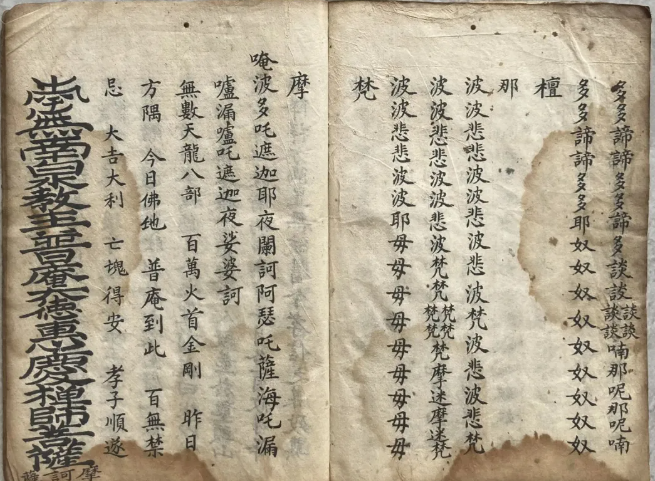 多多諦諦多多諦多談談談談談談喃那呢那呢喃
多多多諦諦多多耶奴奴奴奴奴奴奴奴奴
檀
那
波波悲悲波波悲波梵波悲波悲梵
波波悲悲悲波波悲波梵梵梵梵梵梵梵摩迷摩迷梵
波波悲悲波波耶毋毋毋毋毋毋毋毋
梵
摩
唵波多吒遮迦耶夜闌訶阿瑟吒薩海吒漏
嚧漏嚧吒遮迦夜娑婆訶
無數天龍八部 百萬火首金剛 昨日
方隅 今日佛地 普庵到此 百無禁
忌 大吉大利 亡塊得安 孝子順遂
南無南泉教主普庵大德惠慶禪師菩薩
摩訶薩